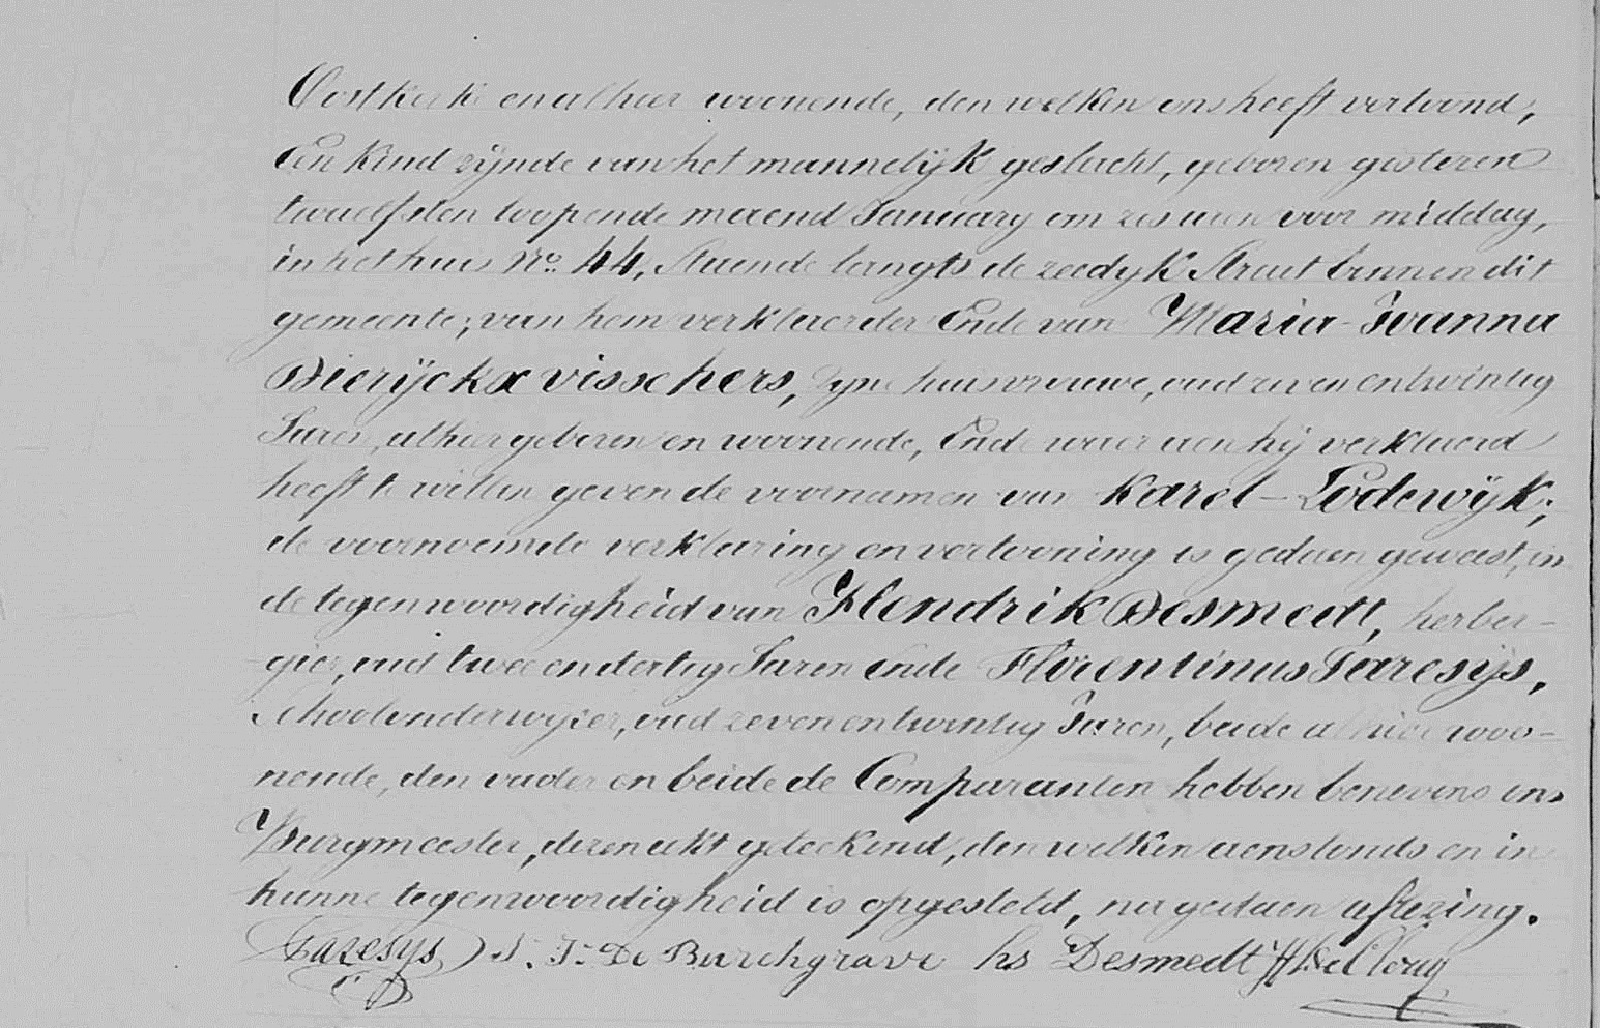 Oostkerke en alhier woonende, den welken ons heeft vertoond,
Een kind zijnde van het mannelijk geslacht, geboren gisteren
twaelfsten loopende maend January om zes uren voor middag,
in het huis No. 44, staende langts de zeedyk Straet binnen dit
gemeente; van hem verklaerder Ende van Maria-Joanna
Dierÿckx visschers, zyne huisvrouwe, oud zeven en twintig
Jaren, alhier geboren en woonende, Ende waer aen hij verklaerd
heeft te willen geven de voornamen van Karel-Lodewÿk;
de voornoemde verklaering en vertooning is gedaen geweest, in
de tegenwoordigheid van Hendrik Desmedt, herber-
gier, oud twee en dertig Jaren Ende Florentinus Paresÿs,
Schoolonderwÿzer, oud zeven en twintig Jaren, beide alhier woo-
nende, den vader en beide de Comparanten hebben benevens ons
Burgmeester, dezen akt geteekend, den welken aenstonds en in
hunne tegenwoordigheid is opgesteld, na gedaen aflezing.
Paresys J. De Burchgrave hs Desmedt